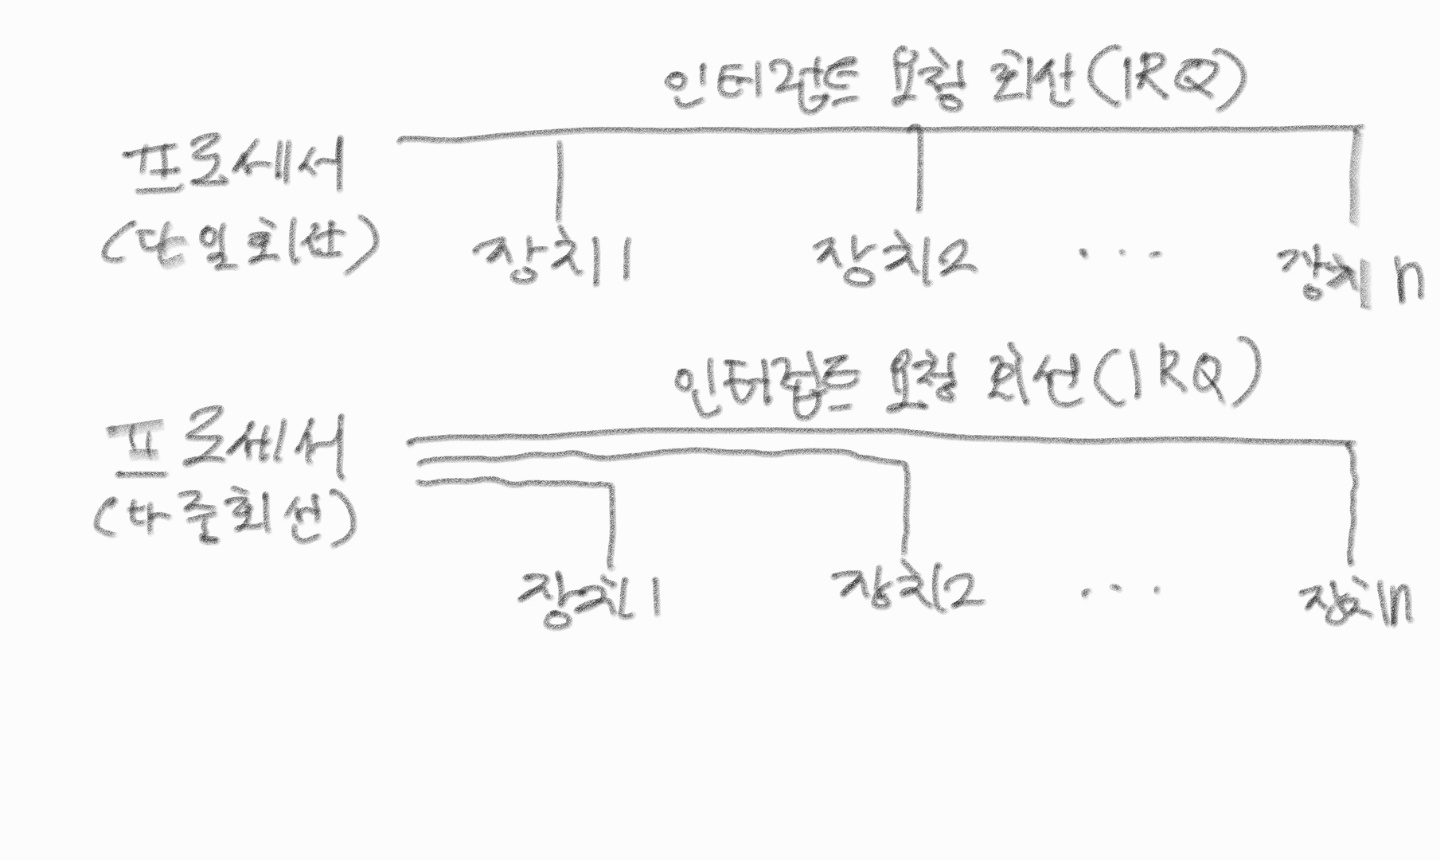 인터럽트 요청 회선(IRQ)
프로세서
(단일회선)
장치1 장치2 ... 장치n
인터럽트 요청 회선(IRQ)
프로세서
(다중회선)
장치1 장치2 ... 장치n